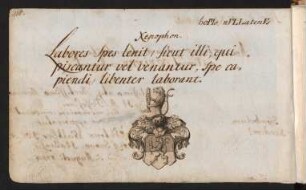 Xenophon.
Labores Spes lenit, sicut illi, qui
piscantur vel venantur, spe ca-
piendi libenter laborant.